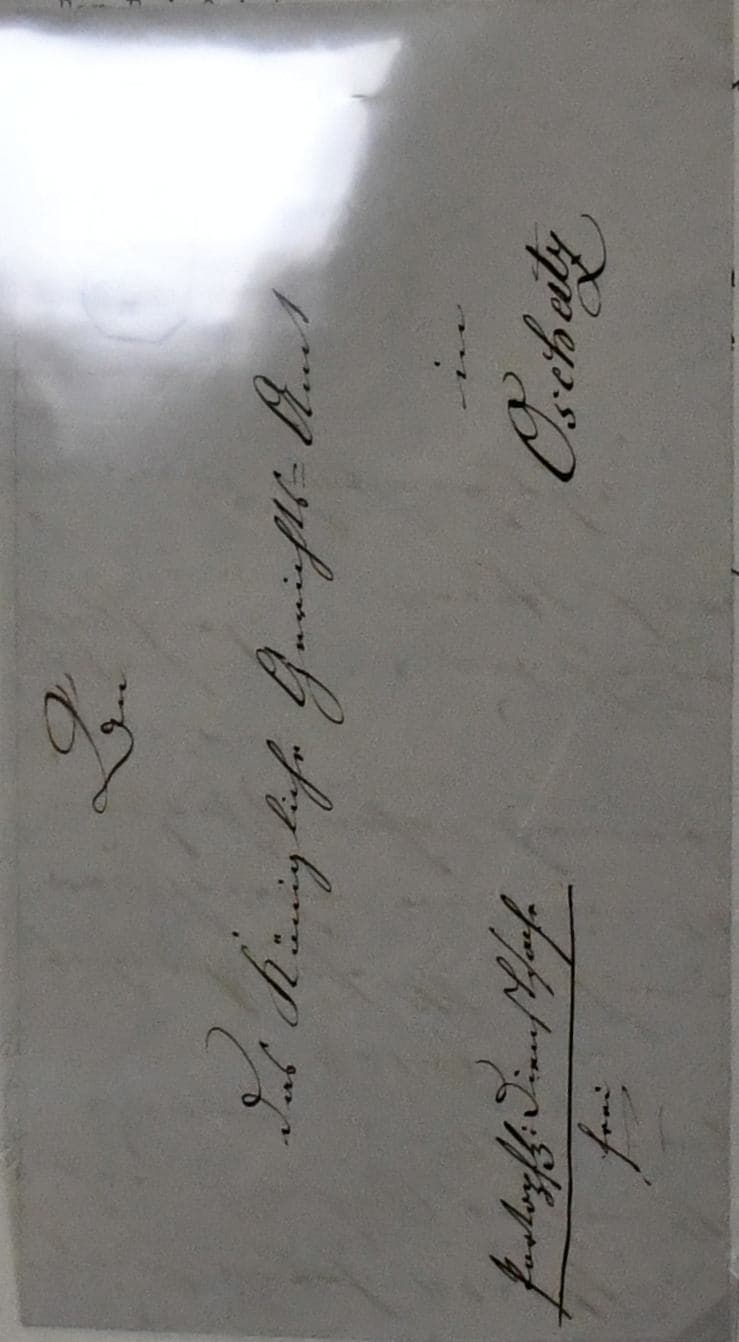 An
das Königliche Gerichts=Amt
in
Oschatz
Dienstsache
frei